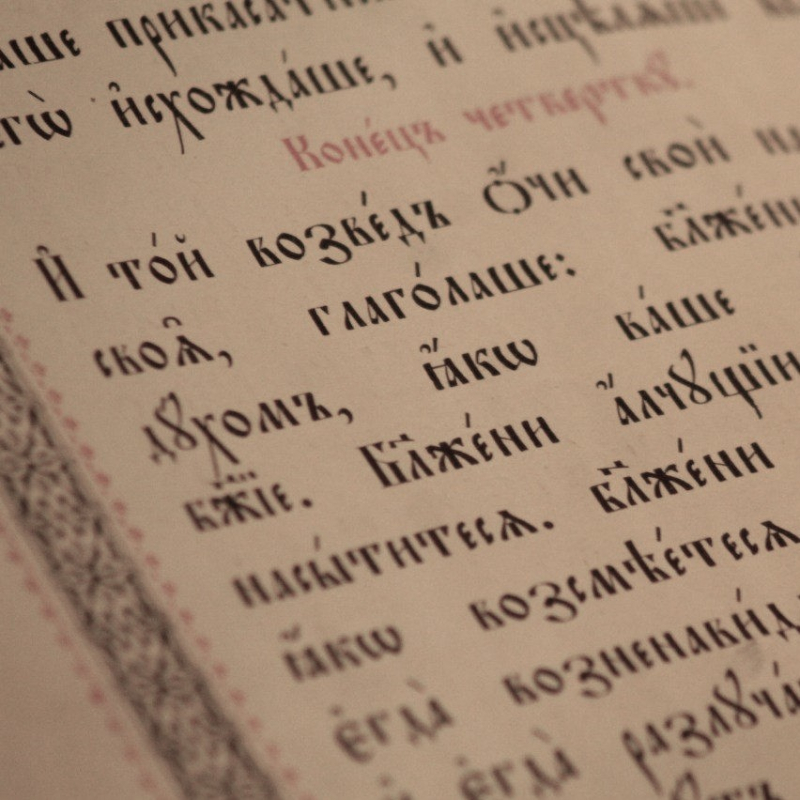 прикаса́тисѧ
и҆схожда́ше, и҆ и҆сцѣлѧ́ше
Коне́цъ четверткꙋ̀.
И҆ то́й возве́дъ Ѻ҆́чи своѝ на
своѧ̑, глаго́лаше: бл҃же́ни
дꙋ́хомъ, ꙗ҆́кѡ ва́ше
бж҃їе. Бл҃же́ни а҆́лчꙋщїи
насы́титесѧ. бл҃же́ни
ꙗ҆́кѡ возсмѣе́тесѧ
є҆гда̀ возненави́дѧтъ
є҆гда̀ разлꙋча́тъ